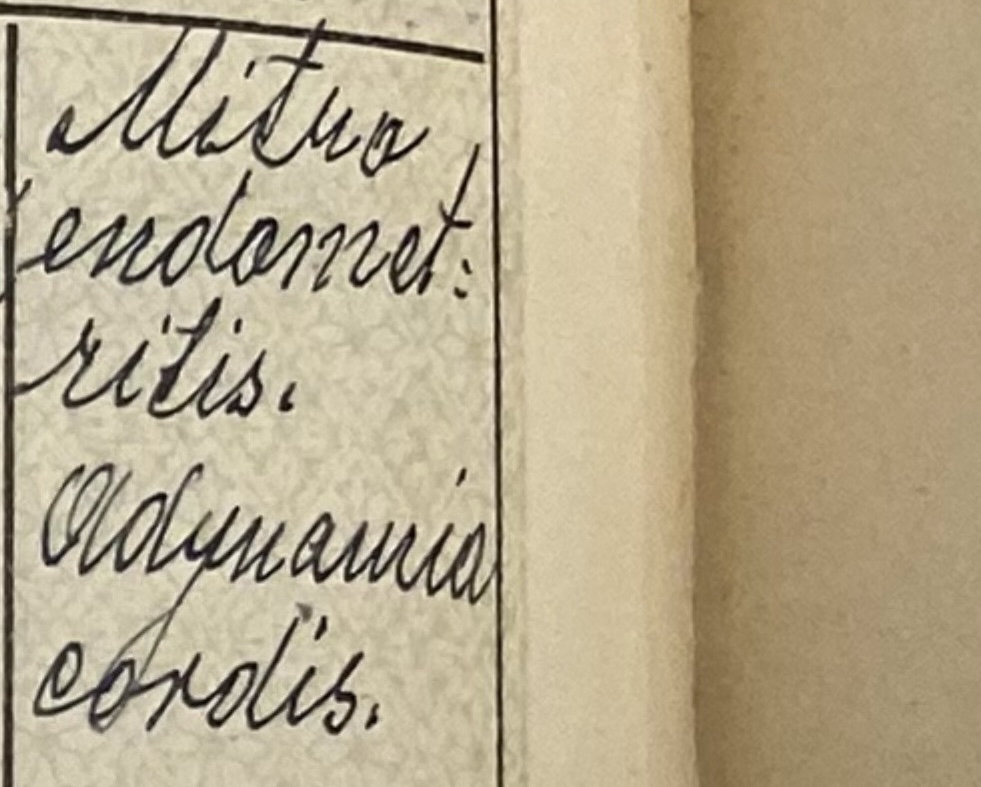 Mitro
endomet:
ritis.
Adynamia
cordis.